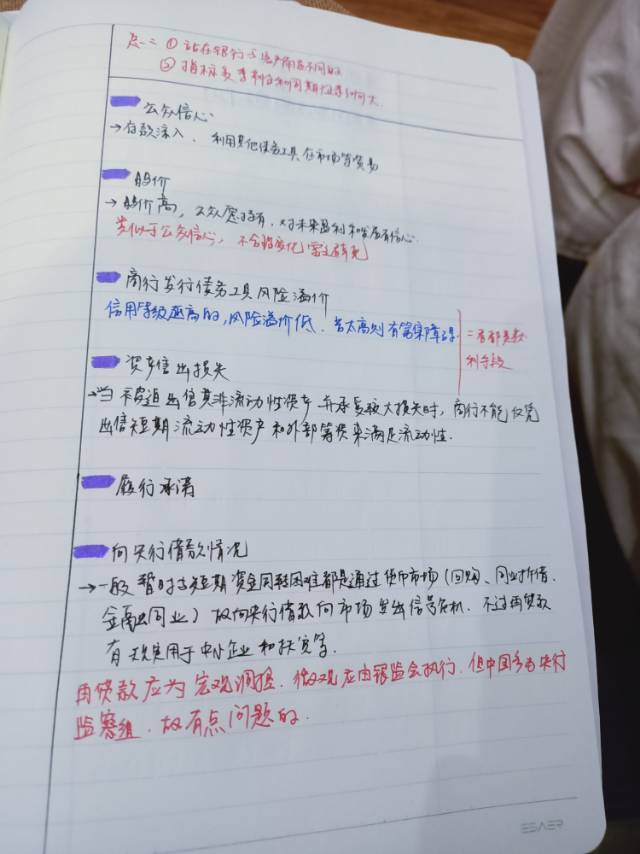 ① 站在银行与客户角度不同的
公众信心
→存款流入、利用其他债务工具在市场皆贸易
股价
→股价高，公众愿持有，对未来盈利和发展有信心.
类似于公众信心，不会
商行发行债务工具风险溢价
信用等级越高的，风险溢价低，若太高则有筹集障碍.
二者都是
利手段
资产售出损失
→当被迫出售其非流动性资产并承受较大损失时，商行不能仅凭
出售短期流动性资产和外部筹资来满足流动性.
履行承诺
向央行借款情况
→一般暂时与短期资金周转困难都是通过货币市场（回购、同业拆借、
金融同业）故向央行借款向市场发出信号危机. 不过再贷款
有政策用于中小企业和扶贫等.
再贷款应为宏观调控. 微观应由银监会执行. 但中国多为央行
监察组，故有点问题的.
ESAER